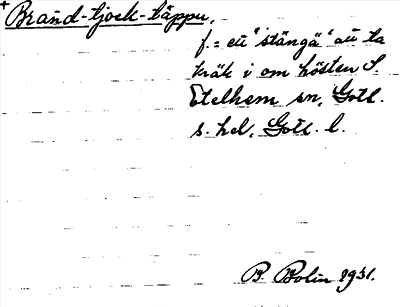 + Brand-tjock-täppu,
f. = en "stängä" att ta
kräk i om hösten S.
Etelhem sn. Gotl.
s. hd, Gotl. l.
B. Bolin 1931.